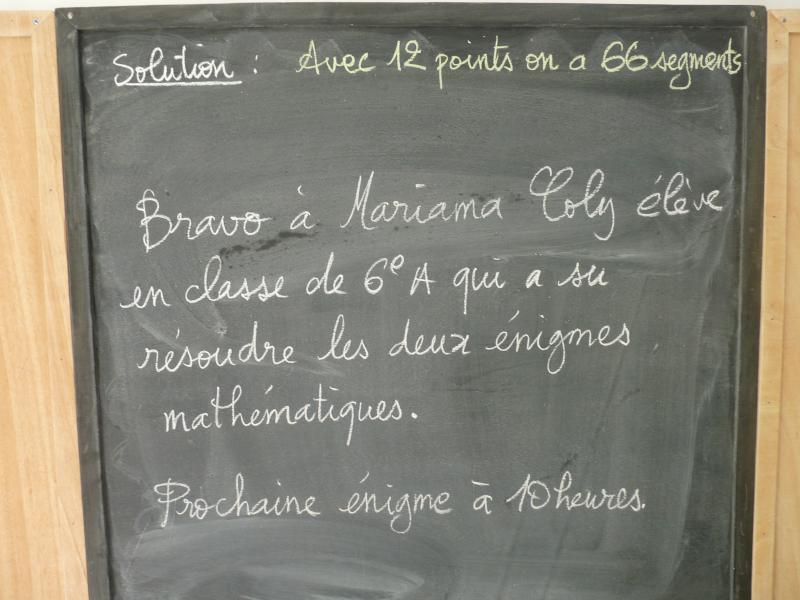 Solution : Avec 12 points on a 66 segments
Bravo à Mariama Coly élève
en classe de 6e A qui a su
résoudre les deux énigmes
mathématiques.
Prochaine énigme à 10 heures.